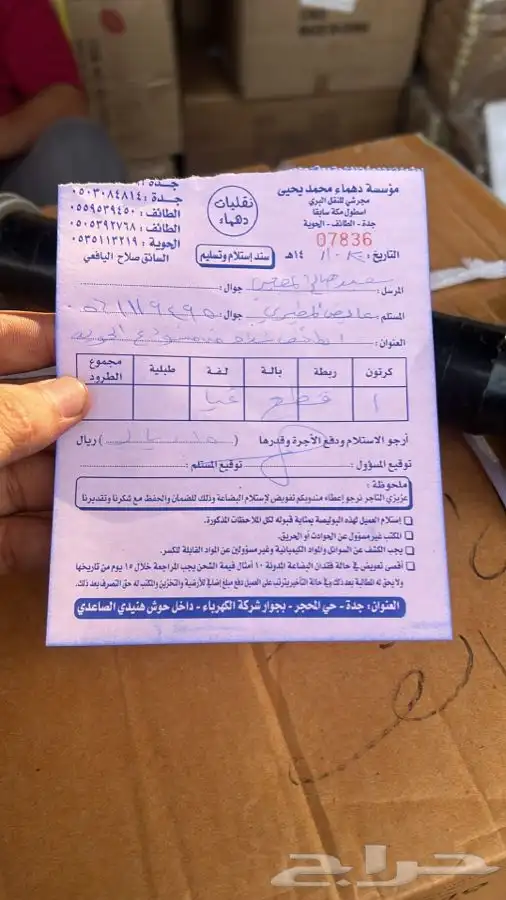 مؤسسة دهماء محمد يحيى
مجرشي للنقل البري
اسطول مكة سابقا
جدة - الطائف - الحوية
07836
نقليات
دهماء
سند إستلام وتسليم
جدة :
جدة : ٠٥٠٣٠٨٤٨١٤
الطائف : ٠٥٥٩٥٣٩٤٥٠
الطائف : ٠٥٠٥٣٩٢٧٦٨
الحوية : ٠٥٣٥١١٣٢١٩
السائق صلاح اليافعي
التاريخ : / ١٠ / ١٤هـ
المرسل : جوال :
المستلم : جوال :
العنوان :
كرتون ربطة بالة لفة طبلية مجموع الطرود
١ قطع غيار
أرجو الاستلام ودفع الأجرة وقدرها ( ) ريال
توقيع المسؤول : توقيع المستلم :
ملحوظة :
عزيزي التاجر نرجو إعطاء مندوبكم تفويض لإستلام البضاعة وذلك للضمان والحفظ مع شكرنا وتقديرنا
إستلام العميل لهذه البوليصة بمثابة قبوله لكل الملاحظات المذكورة.
المكتب غير مسؤول عن الحوادث أو الحريق.
يجب الكشف عن السوائل والمواد الكيميائية وغير مسؤولين عن المواد القابلة للكسر.
أقصى تعويض في حالة فقدان البضاعة المدونة ١٠ أمثال قيمة الشحن يجب المراجعة خلال ١٥ يوم من تاريخها
ولا يحق له المطالبة بعد ذلك وفي حالة التأخير يترتب على العميل دفع مبلغ إضافي للأرضية والتخزين والمكتب له حق التصرف بعد ذلك.
العنوان : جدة - حي المحجر - بجوار شركة الكهرباء - داخل حوش هنيدي الصاعدي
حراج